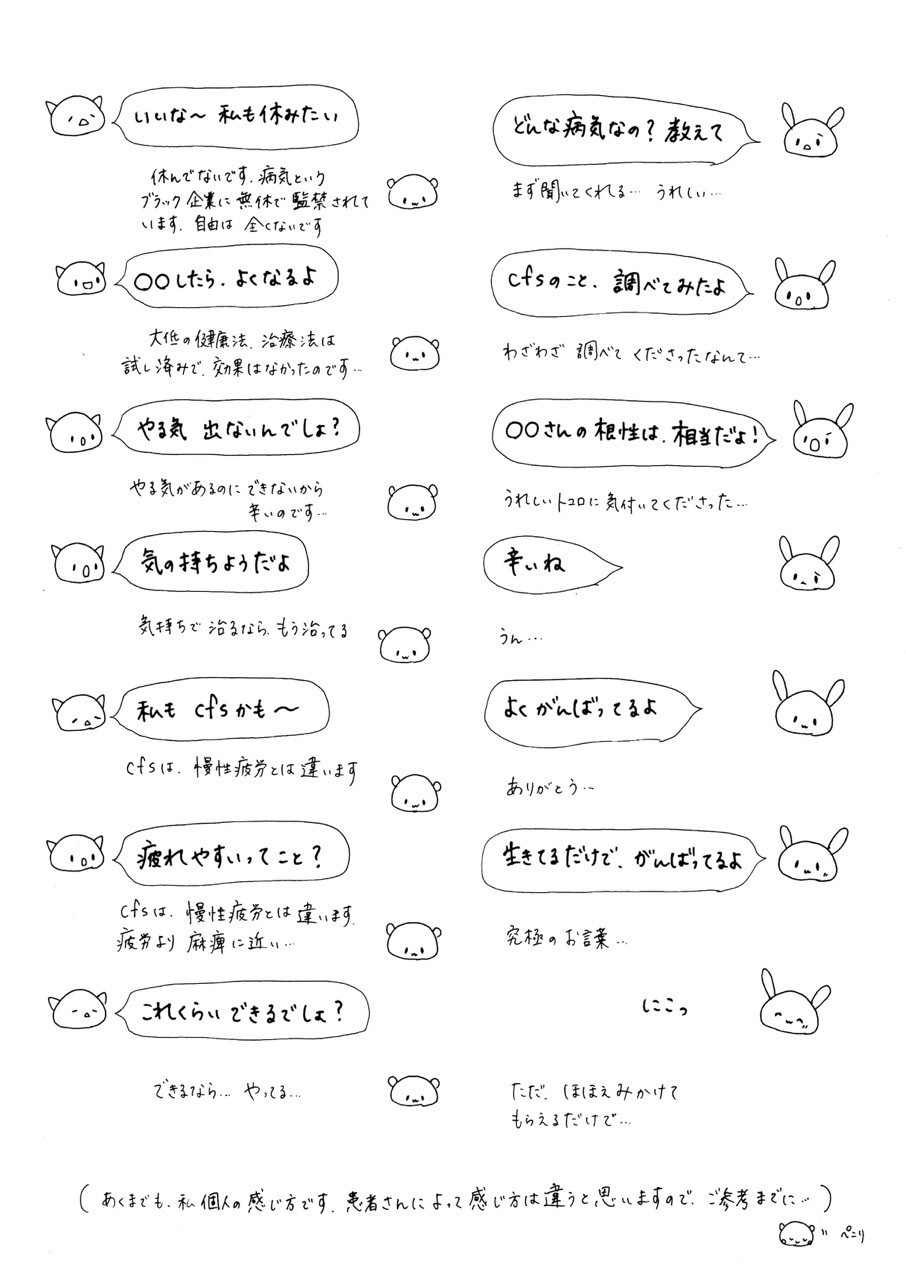 いいな〜 私も休みたい
休んでないです。病気という
ブラック企業に無休で監禁されて
います。自由は全くないです
〇〇したら、よくなるよ
大低の健康法、治療法は
試し済みで、効果はなかったのです…
やる気 出ないんでしょ?
やる気があるのにできないから
辛いのです…
気の持ちようだよ
気持ちで治るなら、もう治ってる
私も cfsかも〜
cfsは、慢性疲労とは違います
疲れやすいってこと?
cfsは、慢性疲労とは違います。
疲労より麻痺に近い…
これくらいできるでしょ?
できるなら… やってる…
どんな病気なの? 教えて
まず聞いてくれる… うれしい…
cfsのこと、調べてみたよ
わざわざ 調べて くださったなんて…
〇〇さんの根性は、相当だよ!
うれしいトコロに気付いてくださった…
辛いね
うん…
よくがんばってるよ
ありがとう…
生きてるだけで、がんばってるよ
究極のお言葉…
にこっ
ただ、ほほえみかけて
もらえるだけで…
(あくまでも、私個人の感じ方です。患者さんによって感じ方は違うと思いますので、ご参考までに…)
ぺこり